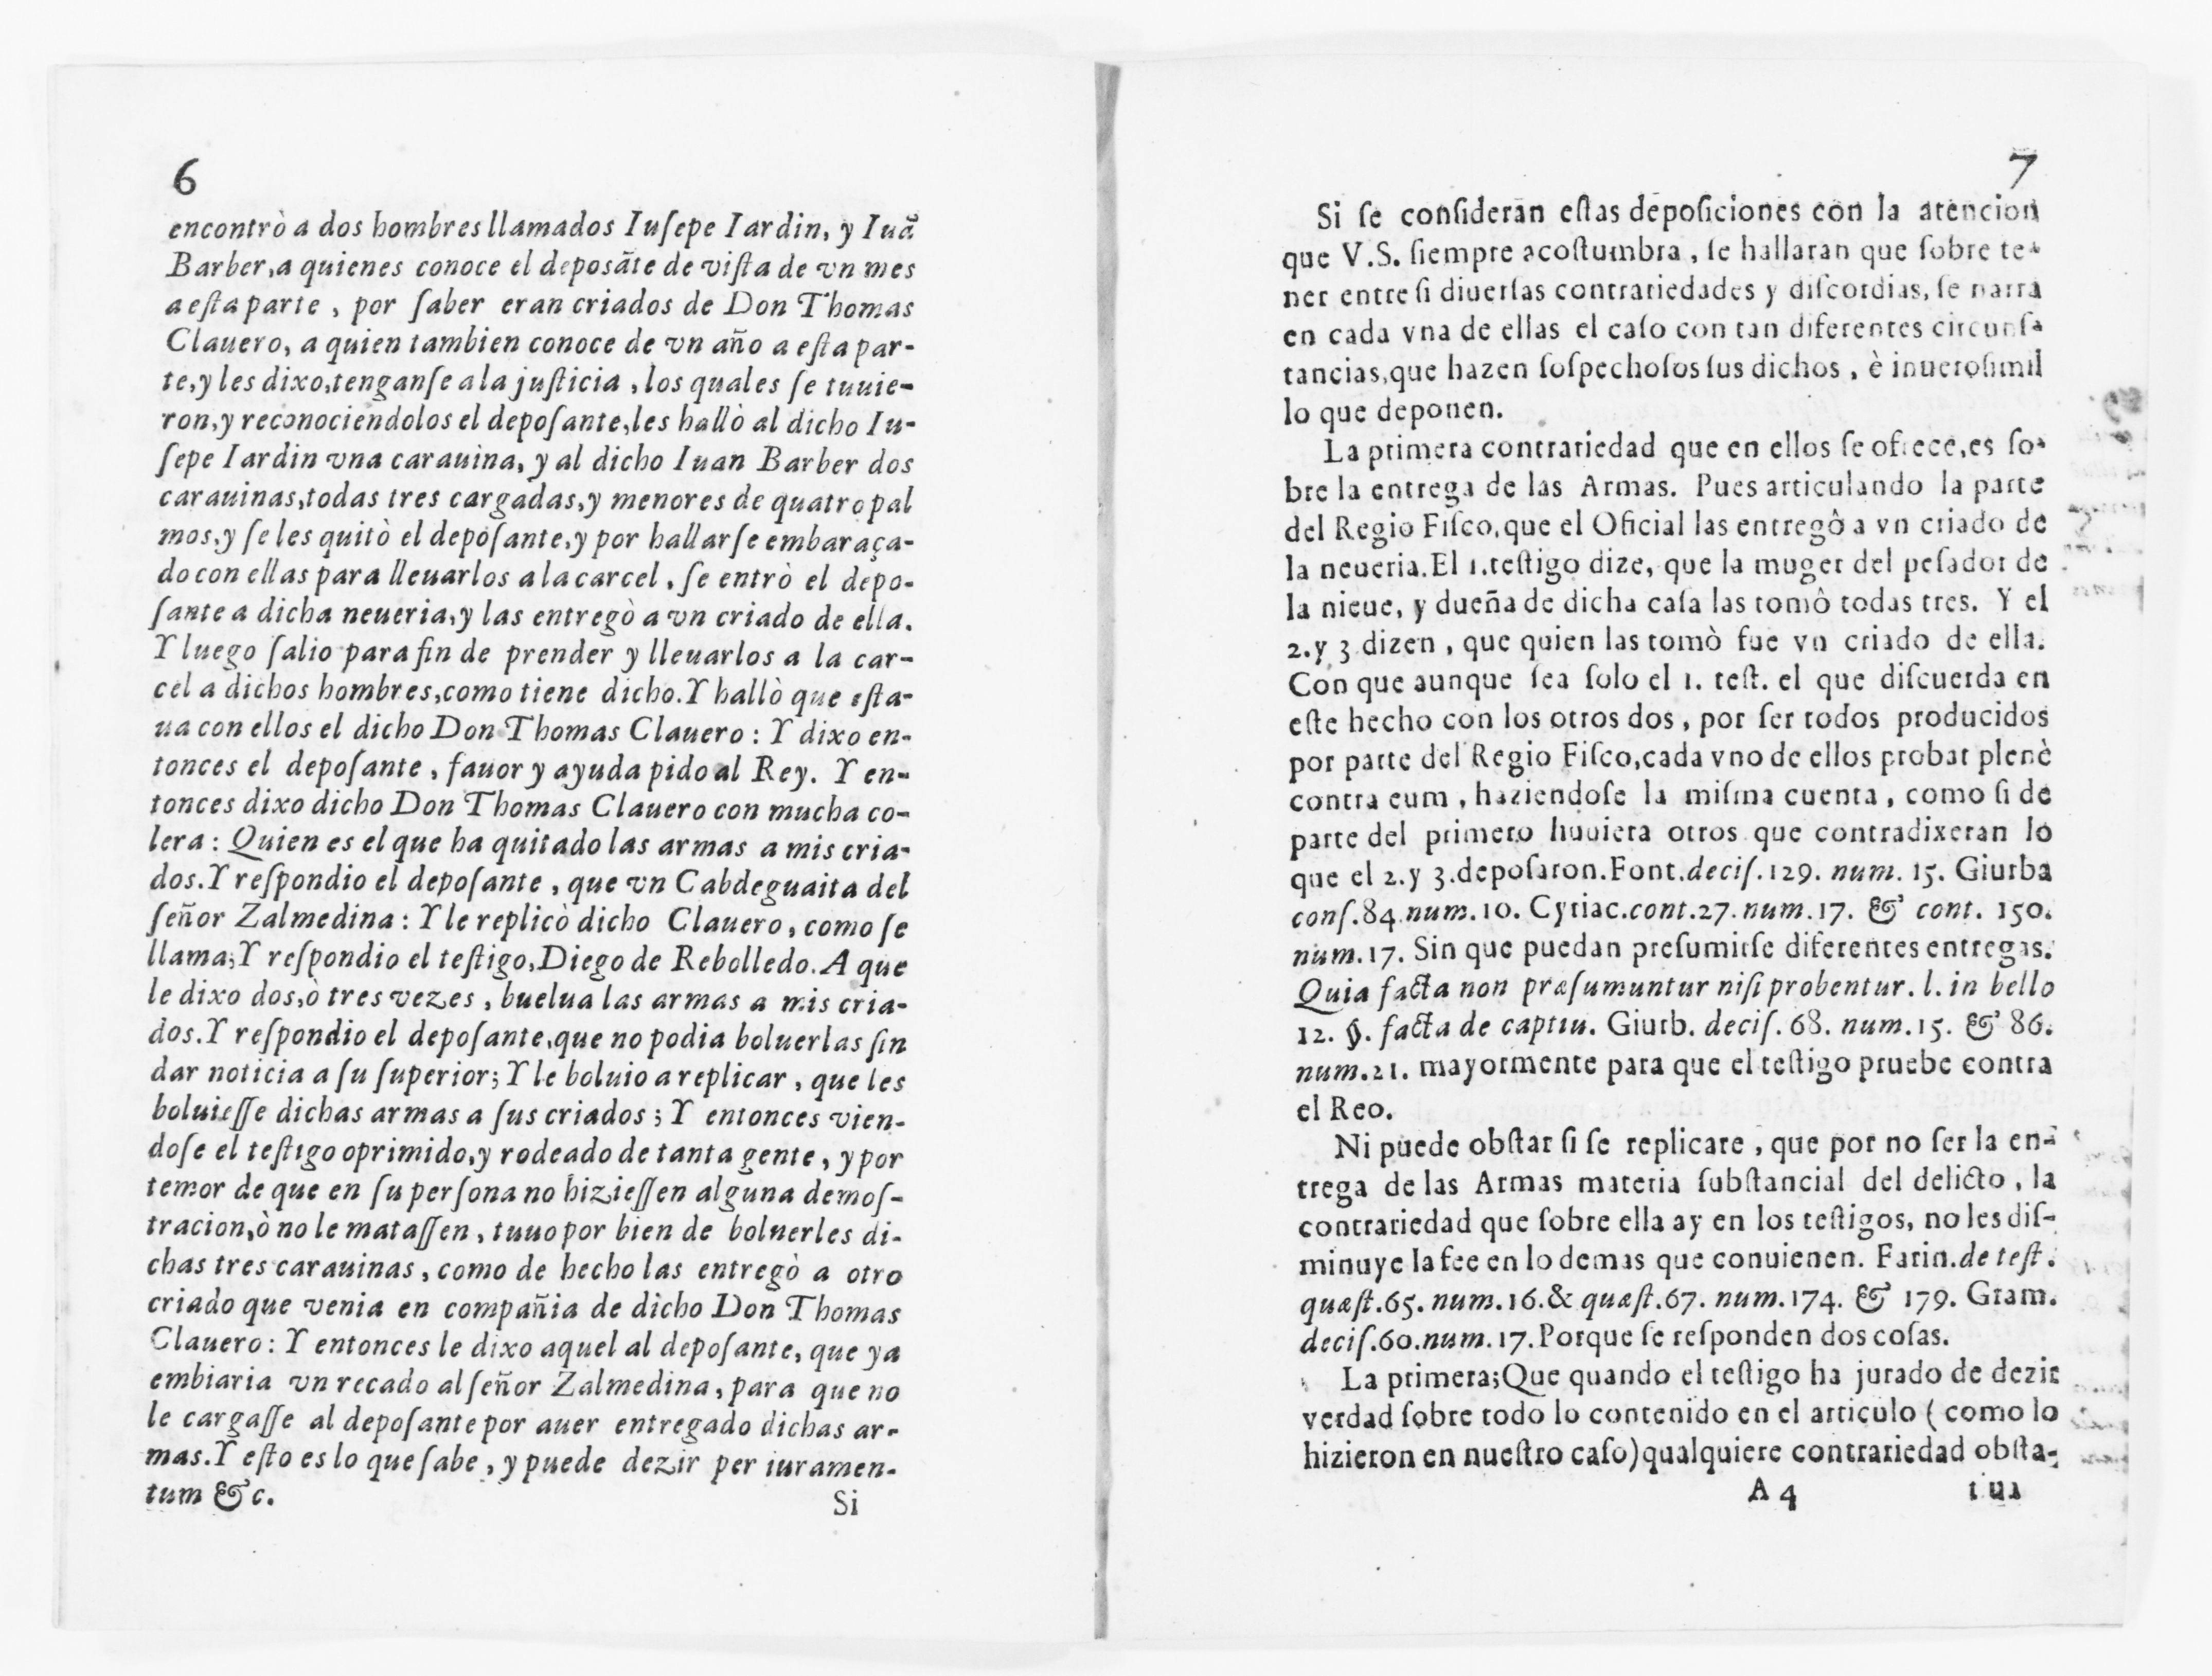 6
encontrò a dos hombres llamados Iuſepe Iardin, y Iuã
Barber, a quienes conoce el deposãte de viſta de vn mes
a eſta parte , por ſaber eran criados de Don Thomas
Clauero, a quien tambien conoce de vn año a eſta par-
te, y les dixo, tenganſe a la juſticia , los quales ſe tuuie-
ron, y reconociendolos el depoſante, les hallò al dicho Iu-
ſepe Iardin vna carauina, y al dicho Iuan Barber dos
carauinas, todas tres cargadas, y menores de quatro pal
mos, y ſe les quitò el depoſante, y por hallarſe embaraça-
do con ellas para lleuarlos a la carcel , ſe entrò el depo-
ſante a dicha neueria, y las entregò a vn criado de ella.
Y luego ſalio para fin de prender y lleuarlos a la car-
cel a dichos hombres, como tiene dicho. Y hallò que eſta-
ua con ellos el dicho Don Thomas Clauero : Y dixo en-
tonces el depoſante , fauor y ayuda pido al Rey. Y en-
tonces dixo dicho Don Thomas Clauero con mucha co-
lera : Quien es el que ha quitado las armas a mis cria-
dos. Y reſpondio el depoſante , que vn Cabdeguaita del
ſeñor Zalmedina : Y le replicò dicho Clauero, como ſe
llama; Y reſpondio el teſtigo, Diego de Rebolledo. A que
le dixo dos, ò tres vezes , buelua las armas a mis cria-
dos. Y reſpondio el depoſante, que no podia boluerlas ſin
dar noticia a ſu ſuperior; Y le boluio a replicar , que les
boluieſſe dichas armas a ſus criados ; Y entonces vien-
doſe el teſtigo oprimido, y rodeado de tanta gente , y por
temor de que en ſu perſona no hizieſſen alguna demoſ-
tracion, ò no le mataſſen , tuuo por bien de boluerles di-
chas tres carauinas , como de hecho las entregò a otro
criado que venia en compañia de dicho Don Thomas
Clauero : Y entonces le dixo aquel al depoſante, que ya
embiaria vn recado al ſeñor Zalmedina, para que no
le cargaſſe al depoſante por auer entregado dichas ar-
mas. Y eſto es lo que ſabe , y puede dezir per iuramen-
tum &c.
Si
7
Si ſe conſideran eſtas depoſiciones con la atencion
que V.S. ſiempre acoſtumbra , ſe hallaran que ſobre te-
ner entre ſi diuerſas contrariedades y diſcordias, ſe narra
en cada vna de ellas el caſo con tan diferentes circunſ-
tancias, que hazen ſoſpechoſos ſus dichos , è inueroſimil
lo que deponen.
La primera contrariedad que en ellos ſe ofrece, es ſo-
bre la entrega de las Armas. Pues articulando la parte
del Regio Fiſco, que el Oficial las entregò a vn criado de
la neueria. El 1. teſtigo dize, que la muger del peſador de
la nieue, y dueña de dicha caſa las tomò todas tres. Y el
2. y 3 dizen , que quien las tomò fue vn criado de ella.
Con que aunque ſea ſolo el 1. teſt. el que diſcuerda en
eſte hecho con los otros dos , por ſer todos producidos
por parte del Regio Fiſco, cada vno de ellos probat plenè
contra eum , haziendoſe la miſma cuenta , como ſi de
parte del primero huuiera otros que contradixeran lo
que el 2. y 3. depoſaron. Font. deciſ. 129. num. 15. Giurba
conſ. 84. num. 10. Cyriac. cont. 27. num. 17. & cont. 150.
num. 17. Sin que puedan preſumirſe diferentes entregas.
Quia facta non præſumuntur niſi probentur. l. in bello
12. §. facta de captiu. Giurb. deciſ. 68. num. 15. & 86.
num. 21. mayormente para que el teſtigo pruebe contra
el Reo.
Ni puede obſtar ſi ſe replicare , que por no ſer la en-
trega de las Armas materia ſubſtancial del delicto , la
contrariedad que ſobre ella ay en los teſtigos, no les diſ-
minuye la fee en lo demas que conuienen. Farin. de teſt.
quæſt. 65. num. 16. & quæſt. 67. num. 174. & 179. Gram.
deciſ. 60. num. 17. Porque ſe reſponden dos coſas.
La primera; Que quando el teſtigo ha jurado de dezir
verdad ſobre todo lo contenido en el articulo ( como lo
hizieron en nueſtro caſo) qualquiere contrariedad obſta-
A 4
tiua